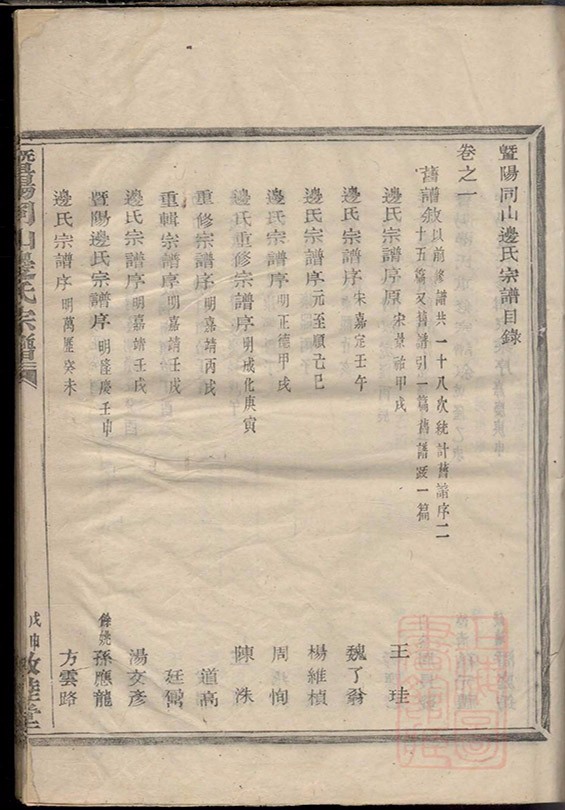 暨陽同山邊氏宗譜目錄
卷之一
舊譜敘以前修譜共一十八次統計舊譜序二
十五篇又舊譜引一篇舊譜跋一篇
邊氏宗譜序原宋景祐甲戌 王珪
邊氏宗譜序宋嘉定壬午 魏了翁
邊氏宗譜序元至順己巳 楊維楨
邊氏宗譜序明正德甲戌 周恂
邊氏重修宗譜序明成化庚寅 陳洙
重修宗譜序明嘉靖丙戌 道高
重輯宗譜序明嘉靖壬戌 廷儒
邊氏宗譜序明嘉靖壬戌 湯文彥
暨陽邊氏宗譜序明隆慶壬申 餘姚孫應龍
邊氏宗譜序明萬曆癸未 方雲路
暨陽同山邊氏宗譜
戊申敦睦堂